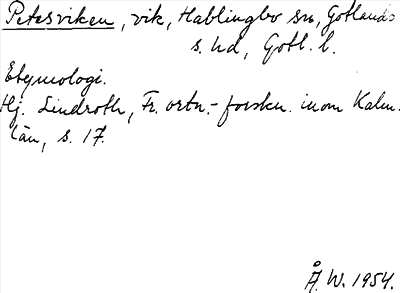 Petesviken, vik, Hablingbo sn, Gotlands
s. hd, Gotl. l.
Etymologi.
Hj. Lindroth, Fr. ortn.-forskn. inom Kalm.
län, s. 17.
Å. W. 1954.